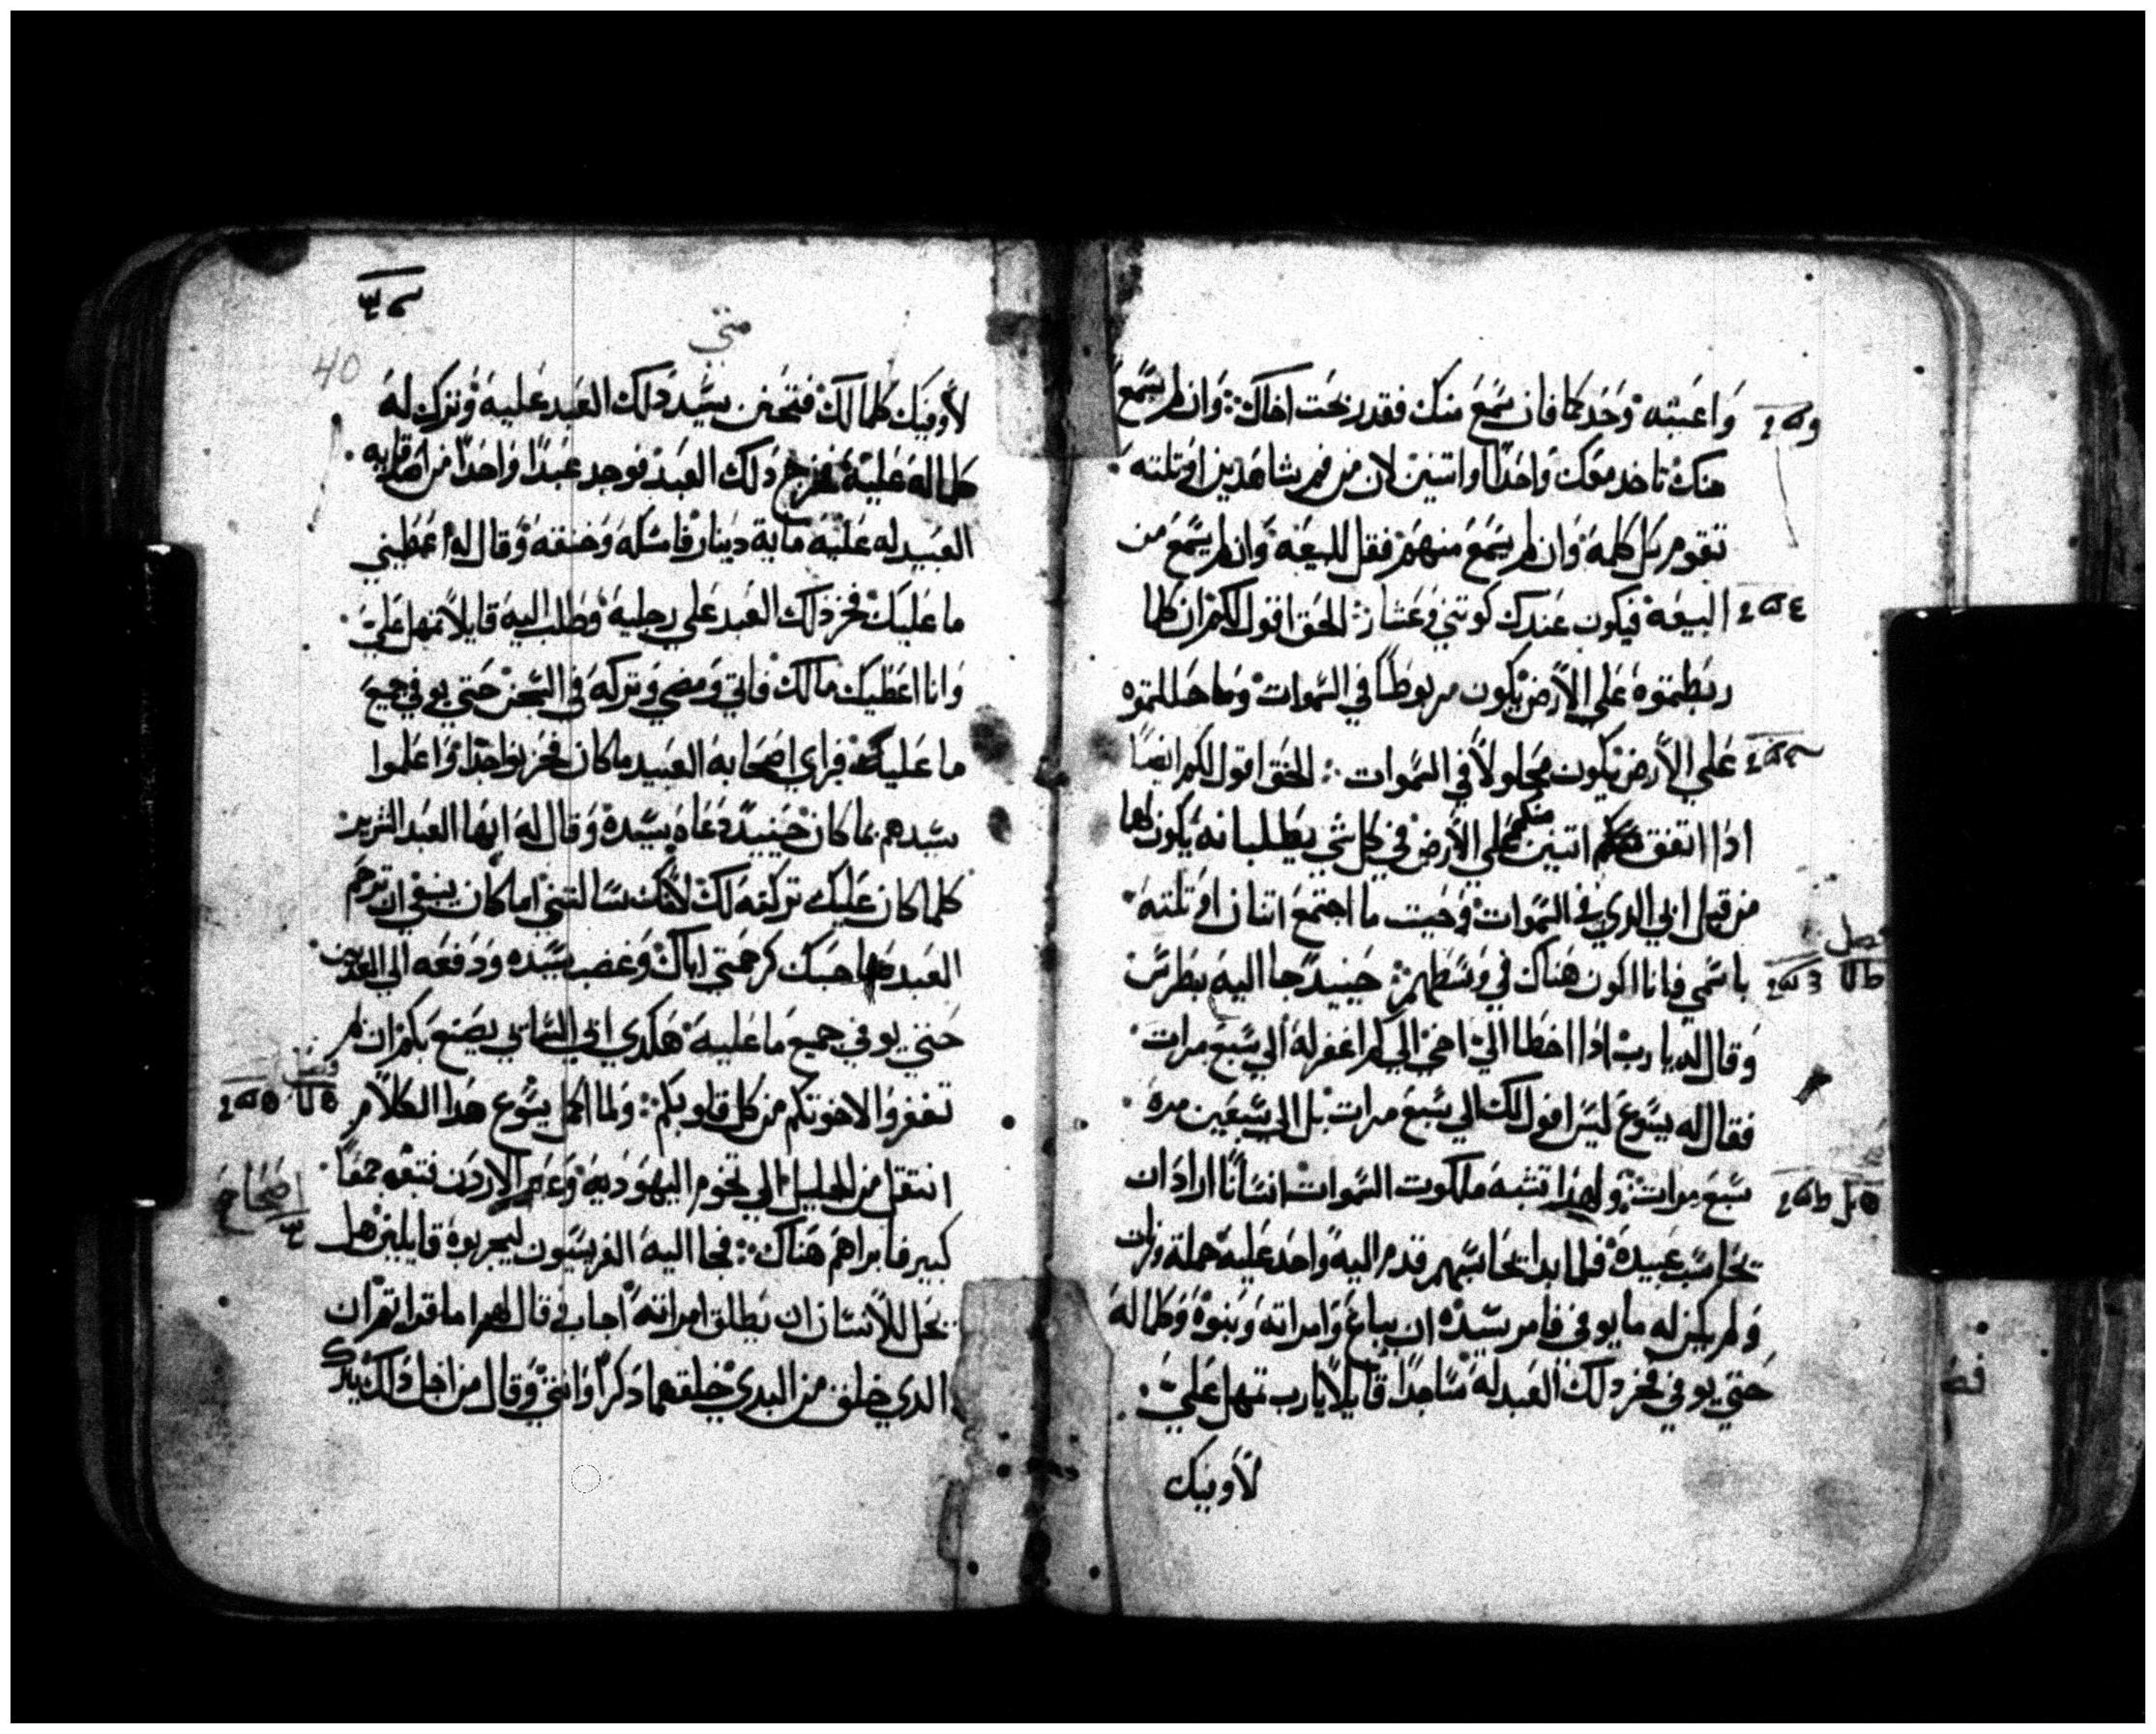 واعتبه وحدكما فان سمع منك فقد ربحت اخاك وان لم يسمع
منك تاخد معك واحدًا واتنين لان من فم شاهدين او تلته
تقوم كل كلمه وان لم يسمع منهم فقل للبيعه وان لم يسمع من
البيعه فيكون عندك كوتني وعشار الحق اقول لكم ان كلما
ربطموه علي الارض يكون مربوطًا في السموات وما حللتموه
علي الارض يكون محلولاً في السموات الحق اقول لكم ايضًا
ادا اتفق اتنين منكم علي الارض في كل شي يطلبانه يكون لهما
من قبل ابي الدي في السموات وحيت ما اجتمع اتنان او تلته
باسمي فانا اكون هناك في وسطهم حينيد جا اليه بطرس
وقال له يا رب ادا اخطا الي اخي الي كم اغفر له الي سبع مرات
فقال له يسوع ليس اقول لك الي سبع مرات بل الي سبعين مره
سبع مرات ولهدا تشبه ملكوت السموات انسانًا اراد ان
يحاسب عبيده فلما بدا يحاسبهم قدم اليه واحد عليه جملة وزنات
ولم يكن له ما يوفي فامر سيده ان يباع وامراته وبنوه وكلما له
حتي يوفي فخر دلك العبد له ساجدًا قايلاً يا رب تمهل علي
لاوفيك
متي
40
لاوفيك كلما لك فتحنن سيد دلك العبد عليه وترك له
كلما له عليه فخرج دلك العبد فوجد عبدًا واحدًا من اقرابه
العبيد له عليه مايه دينار فامسكه وخنقه وقال له اعطيني
ما عليك فخر دلك العبد علي رجليه وطلب اليه قايلاً تمهل علي
وانا اعطيك مالك فابي ومضي وتركه في السجن حتي يوفي جميع
ما عليه فراي اصحابه العبيد ما كان فحزنوا جدًا واعلموا
سيدهم بما كان حينيد دعاه سيده وقال له ايها العبد الشرير
كلما كان عليك تركته لك لانك سالتني اما كان ينبغي ان ترحم
العبد صاحبك كرحمتي اياك وغضب سيده ودفعه الي المعدبين
حتي يوفي جميع ما عليه هكدي ابي السماي يصنع بكم ان لم
تغفروا لاخوتكم من كل قلوبكم ولما اكمل يسوع هدا الكلام
انتقل من الجليل الي تخوم اليهوديه وعبر الاردن فتبعه جمعًا
كبير فابراهم هناك فجا اليه الفريسيون ليجربوه قايلين هل
يحل للانسان ان يطلق امراته اجاب قال لهم اما قراتم ان
الدي خلق من البدي خلقهما دكرًا وانتي وقال من اجل دلك يترك
اصحاح